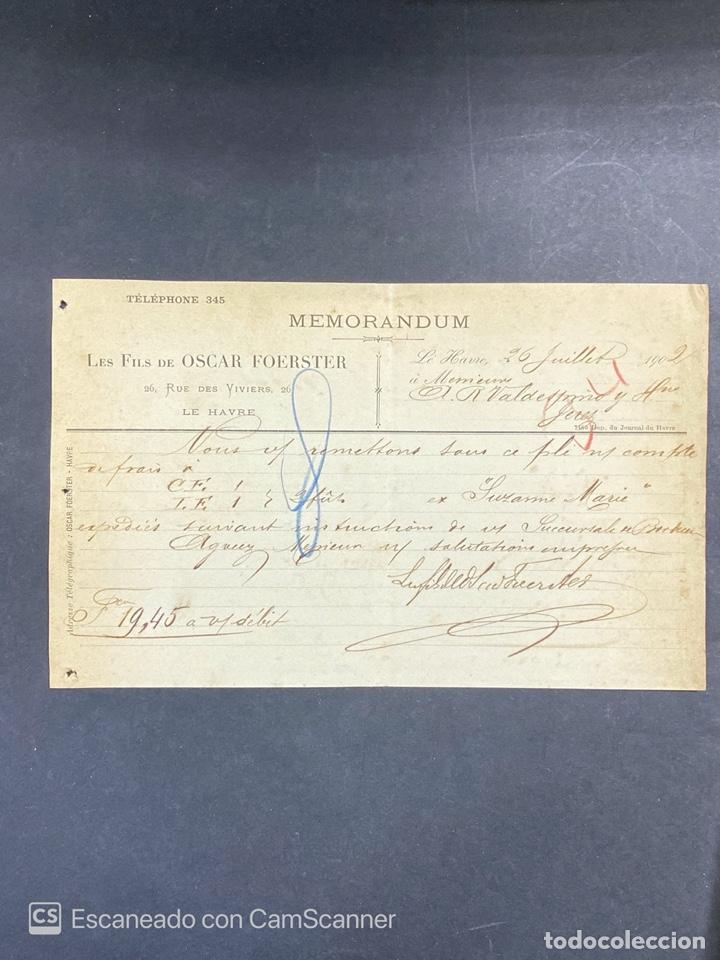 TÉLÉPHONE 345
MEMORANDUM
LES FILS DE OSCAR FOERSTER
26, RUE DES VIVIERS, 26
LE HAVRE
Le Havre, 26 Juillet 1902
à Messieurs
A. R. Valdespino y Hno
Jerez
Imp. du Journal du Havre
Adresse Télégraphique : OSCAR FOERSTER - HAVRE
Nous vs remettons sous ce pli n/ compte
de frais à
C.F. 1
I.F. 1 } 2 fûts ex "Suzanne Marie"
expédiés suivant instructions de vs Succursale de Bordeaux
Agréez Messieurs n/ salutations empressées
Les Fils de Oscar Foerster
F 19,45 a v/ débit
CS Escaneado con CamScanner
todocoleccion